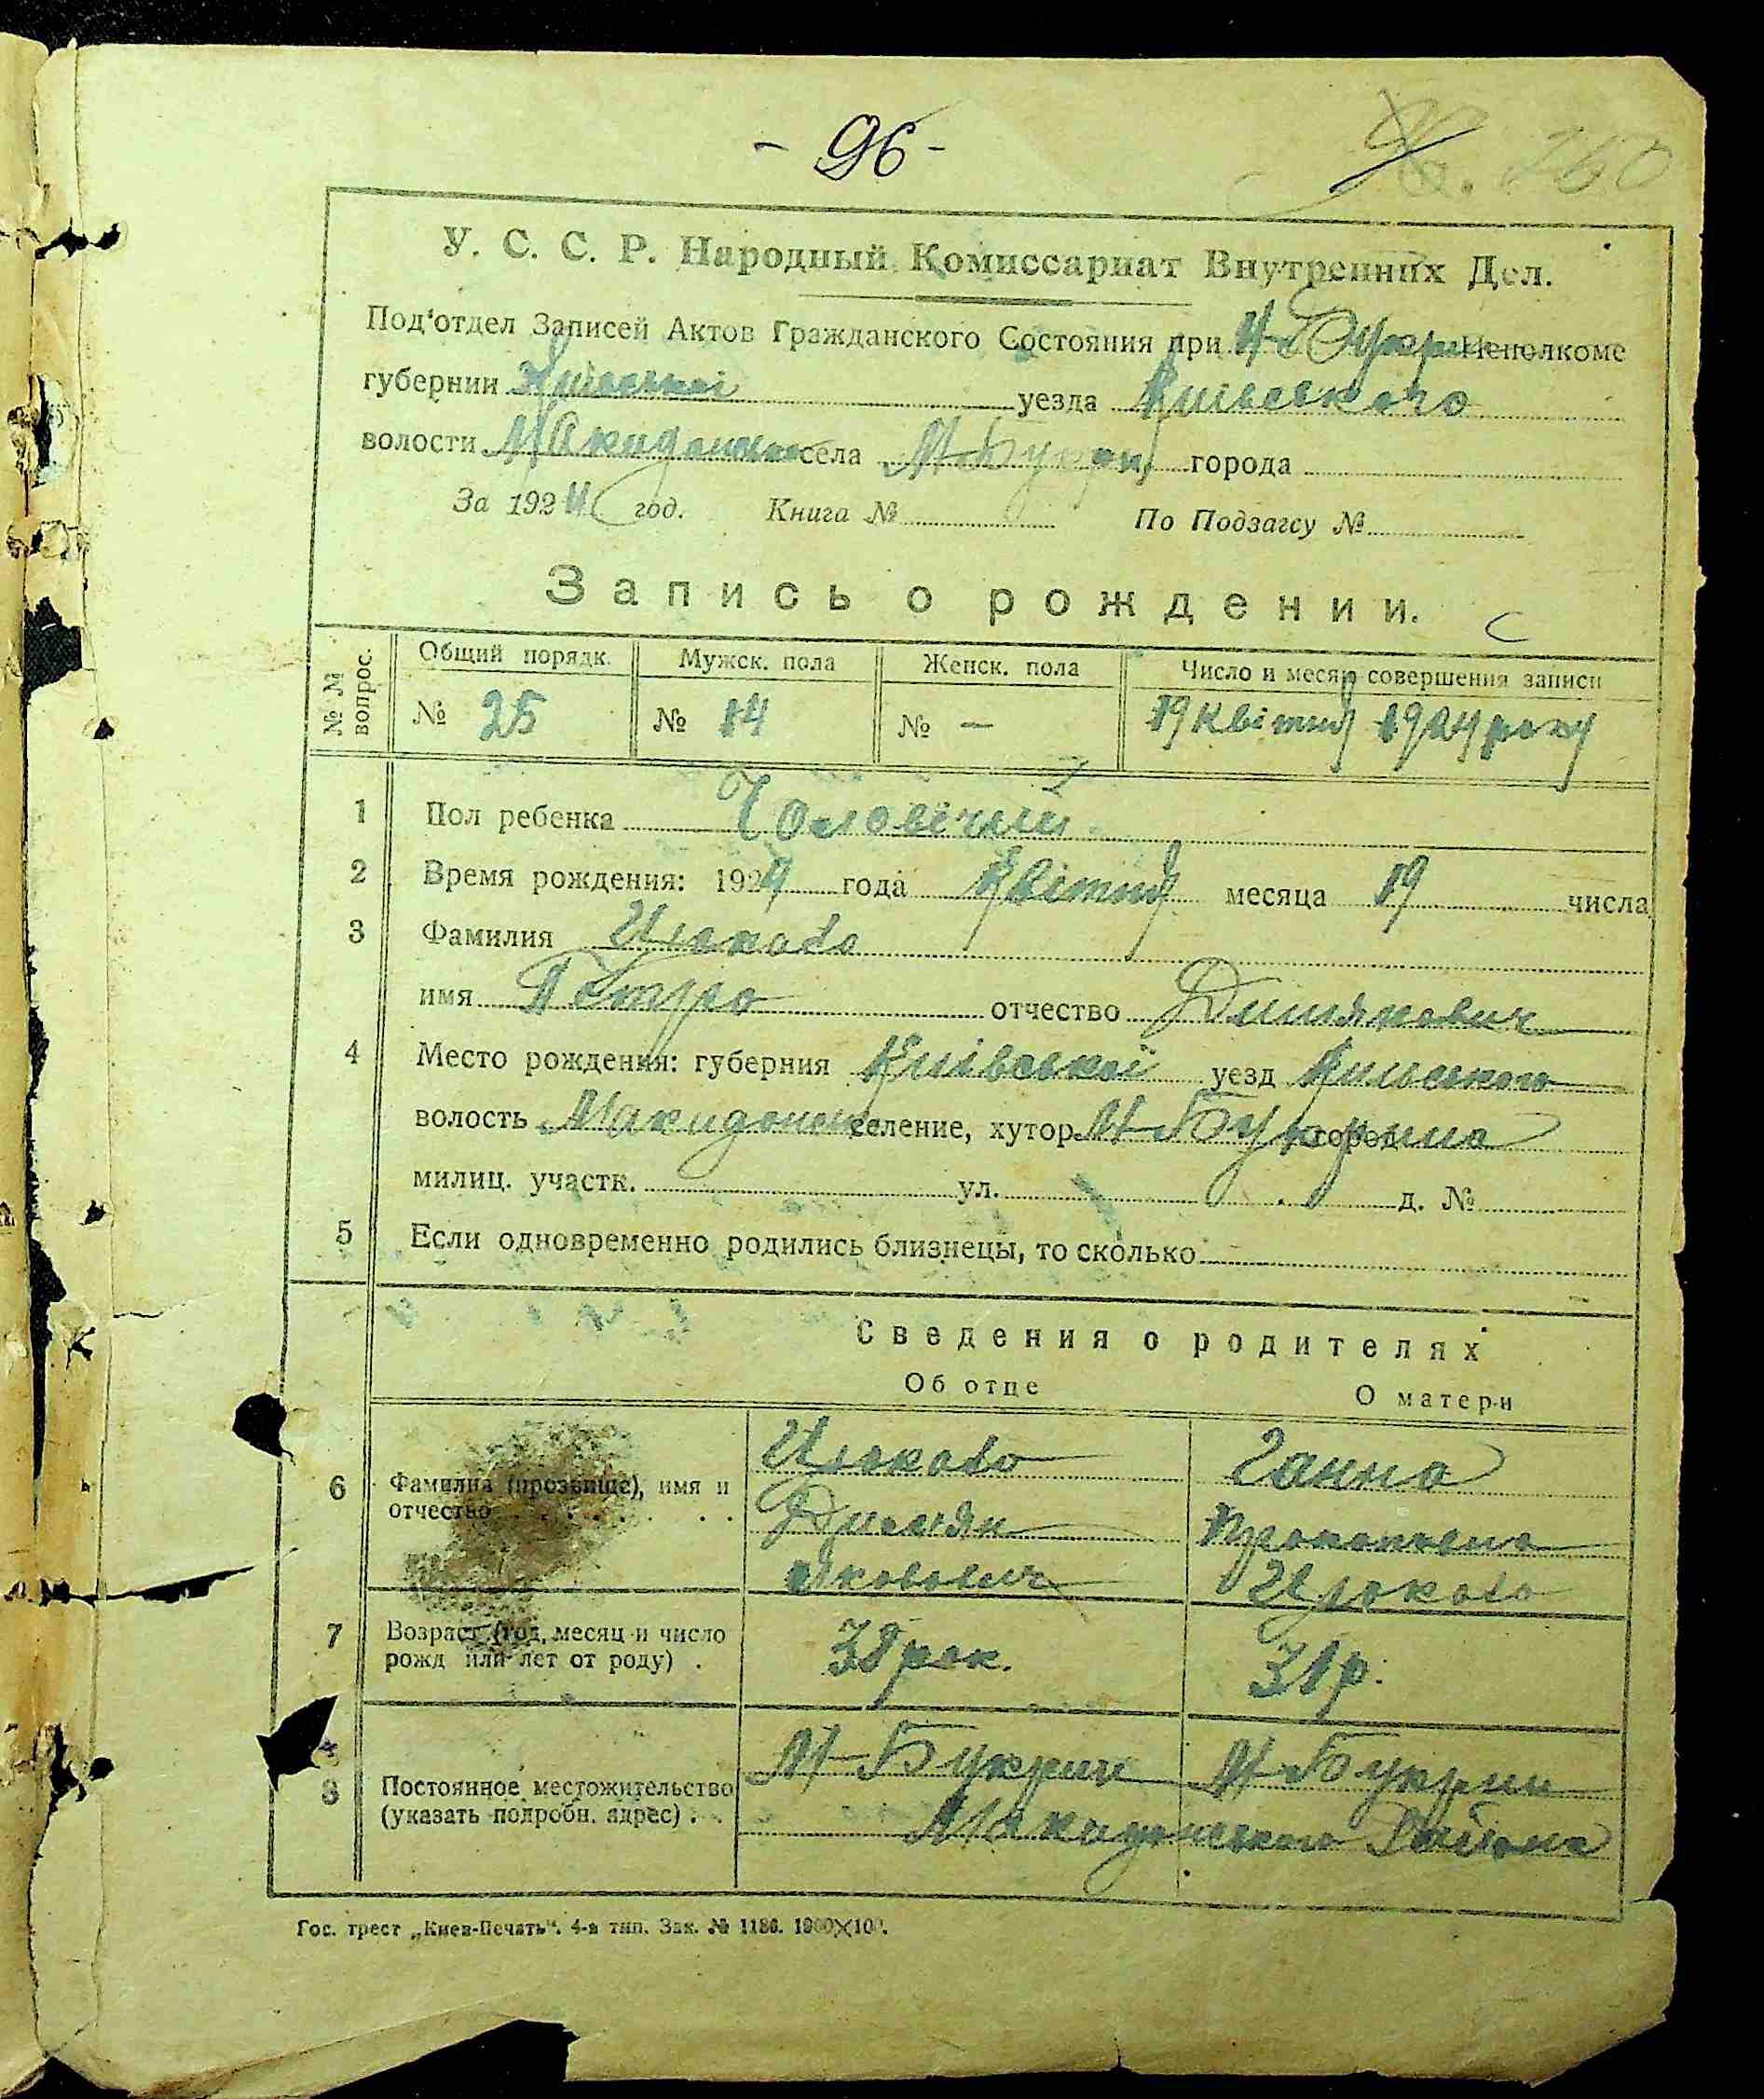 - 96 -
260
У. С. С. Р. Народный Комиссариат Внутренних Дел.
Под'отдел Записей Актов Гражданского Состояния при М-Букрин Исполкоме
губернии Київської уезда Київського
волости Макидонск села М-Букрин города
За 1924 год. Книга № По Подзагсу №
Запись о рождении.
№ № вопрос. Общий порядк. Мужск. пола Женск. пола Число и месяц совершения записи
№ 25 № 14 № — 19 квітня 1924 року
1 Пол ребенка Чоловічий
2 Время рождения: 1924 года Квітня месяца 19 числа
3 Фамилия
имя Петро отчество Димянович
4 Место рождения: губерния Київської уезд Київського
волость Макидонск селение, хутор М-Букрина город
милиц. участк. ул. д. №
5 Если одновременно родились близнецы, то сколько
Сведения о родителях
Об отце О матери
6 Фамилиа (прозвище), имя и отчество Димян Якович Ганна Прокопівна
7 Возраст (год, месяц и число рожд или лет от роду) . 38 рок. 31 р.
8 Постоянное местожительство (указать подробн. адрес) . . М-Букрин М-Букрин
Макидонського Району
Гос. трест „Киев-Печать“. 4-я тип. Зак. № 1186. 1000×100.